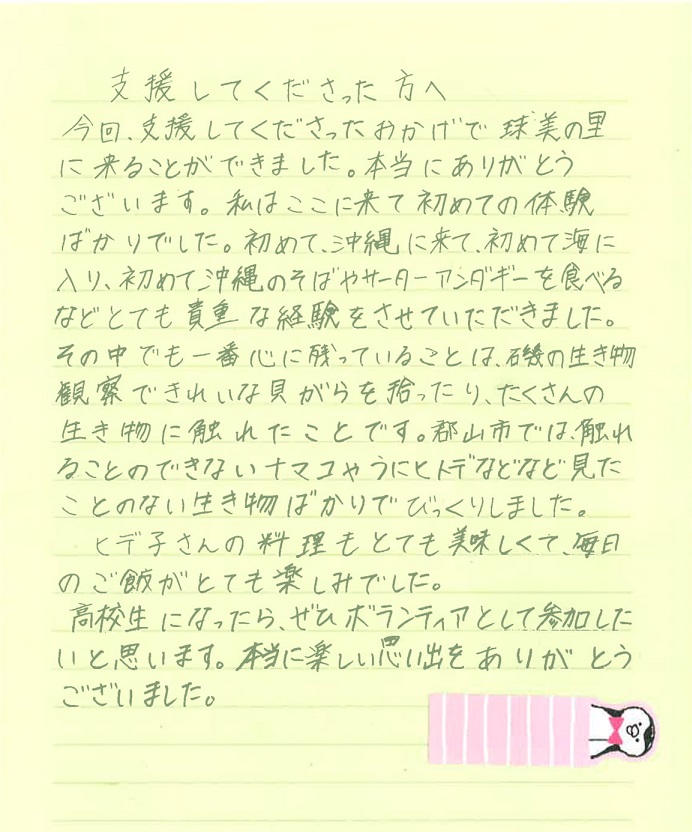 支援してくださった方へ
今回、支援してくださったおかげで球美の里
に来ることができました。本当にありがとう
ございます。私はここに来て初めての体験
ばかりでした。初めて、沖縄に来て、初めて海に
入り、初めて沖縄のそばやサーターアンダギーを食べる
などとても貴重な経験をさせていただきました。
その中でも一番心に残っていることは、磯の生き物
観察できれいな貝がらを拾ったり、たくさんの
生き物に触れたことです。郡山市では、触れ
ることのできないナマコやうにヒトデなどなど見た
ことのない生き物ばかりでびっくりしました。
ヒデ子さんの料理もとても美味しくて、毎日
のご飯がとても楽しみでした。
高校生になったら、ぜひボランティアとして参加した
いと思います。本当に楽しい思い出をありがとう
ございました。